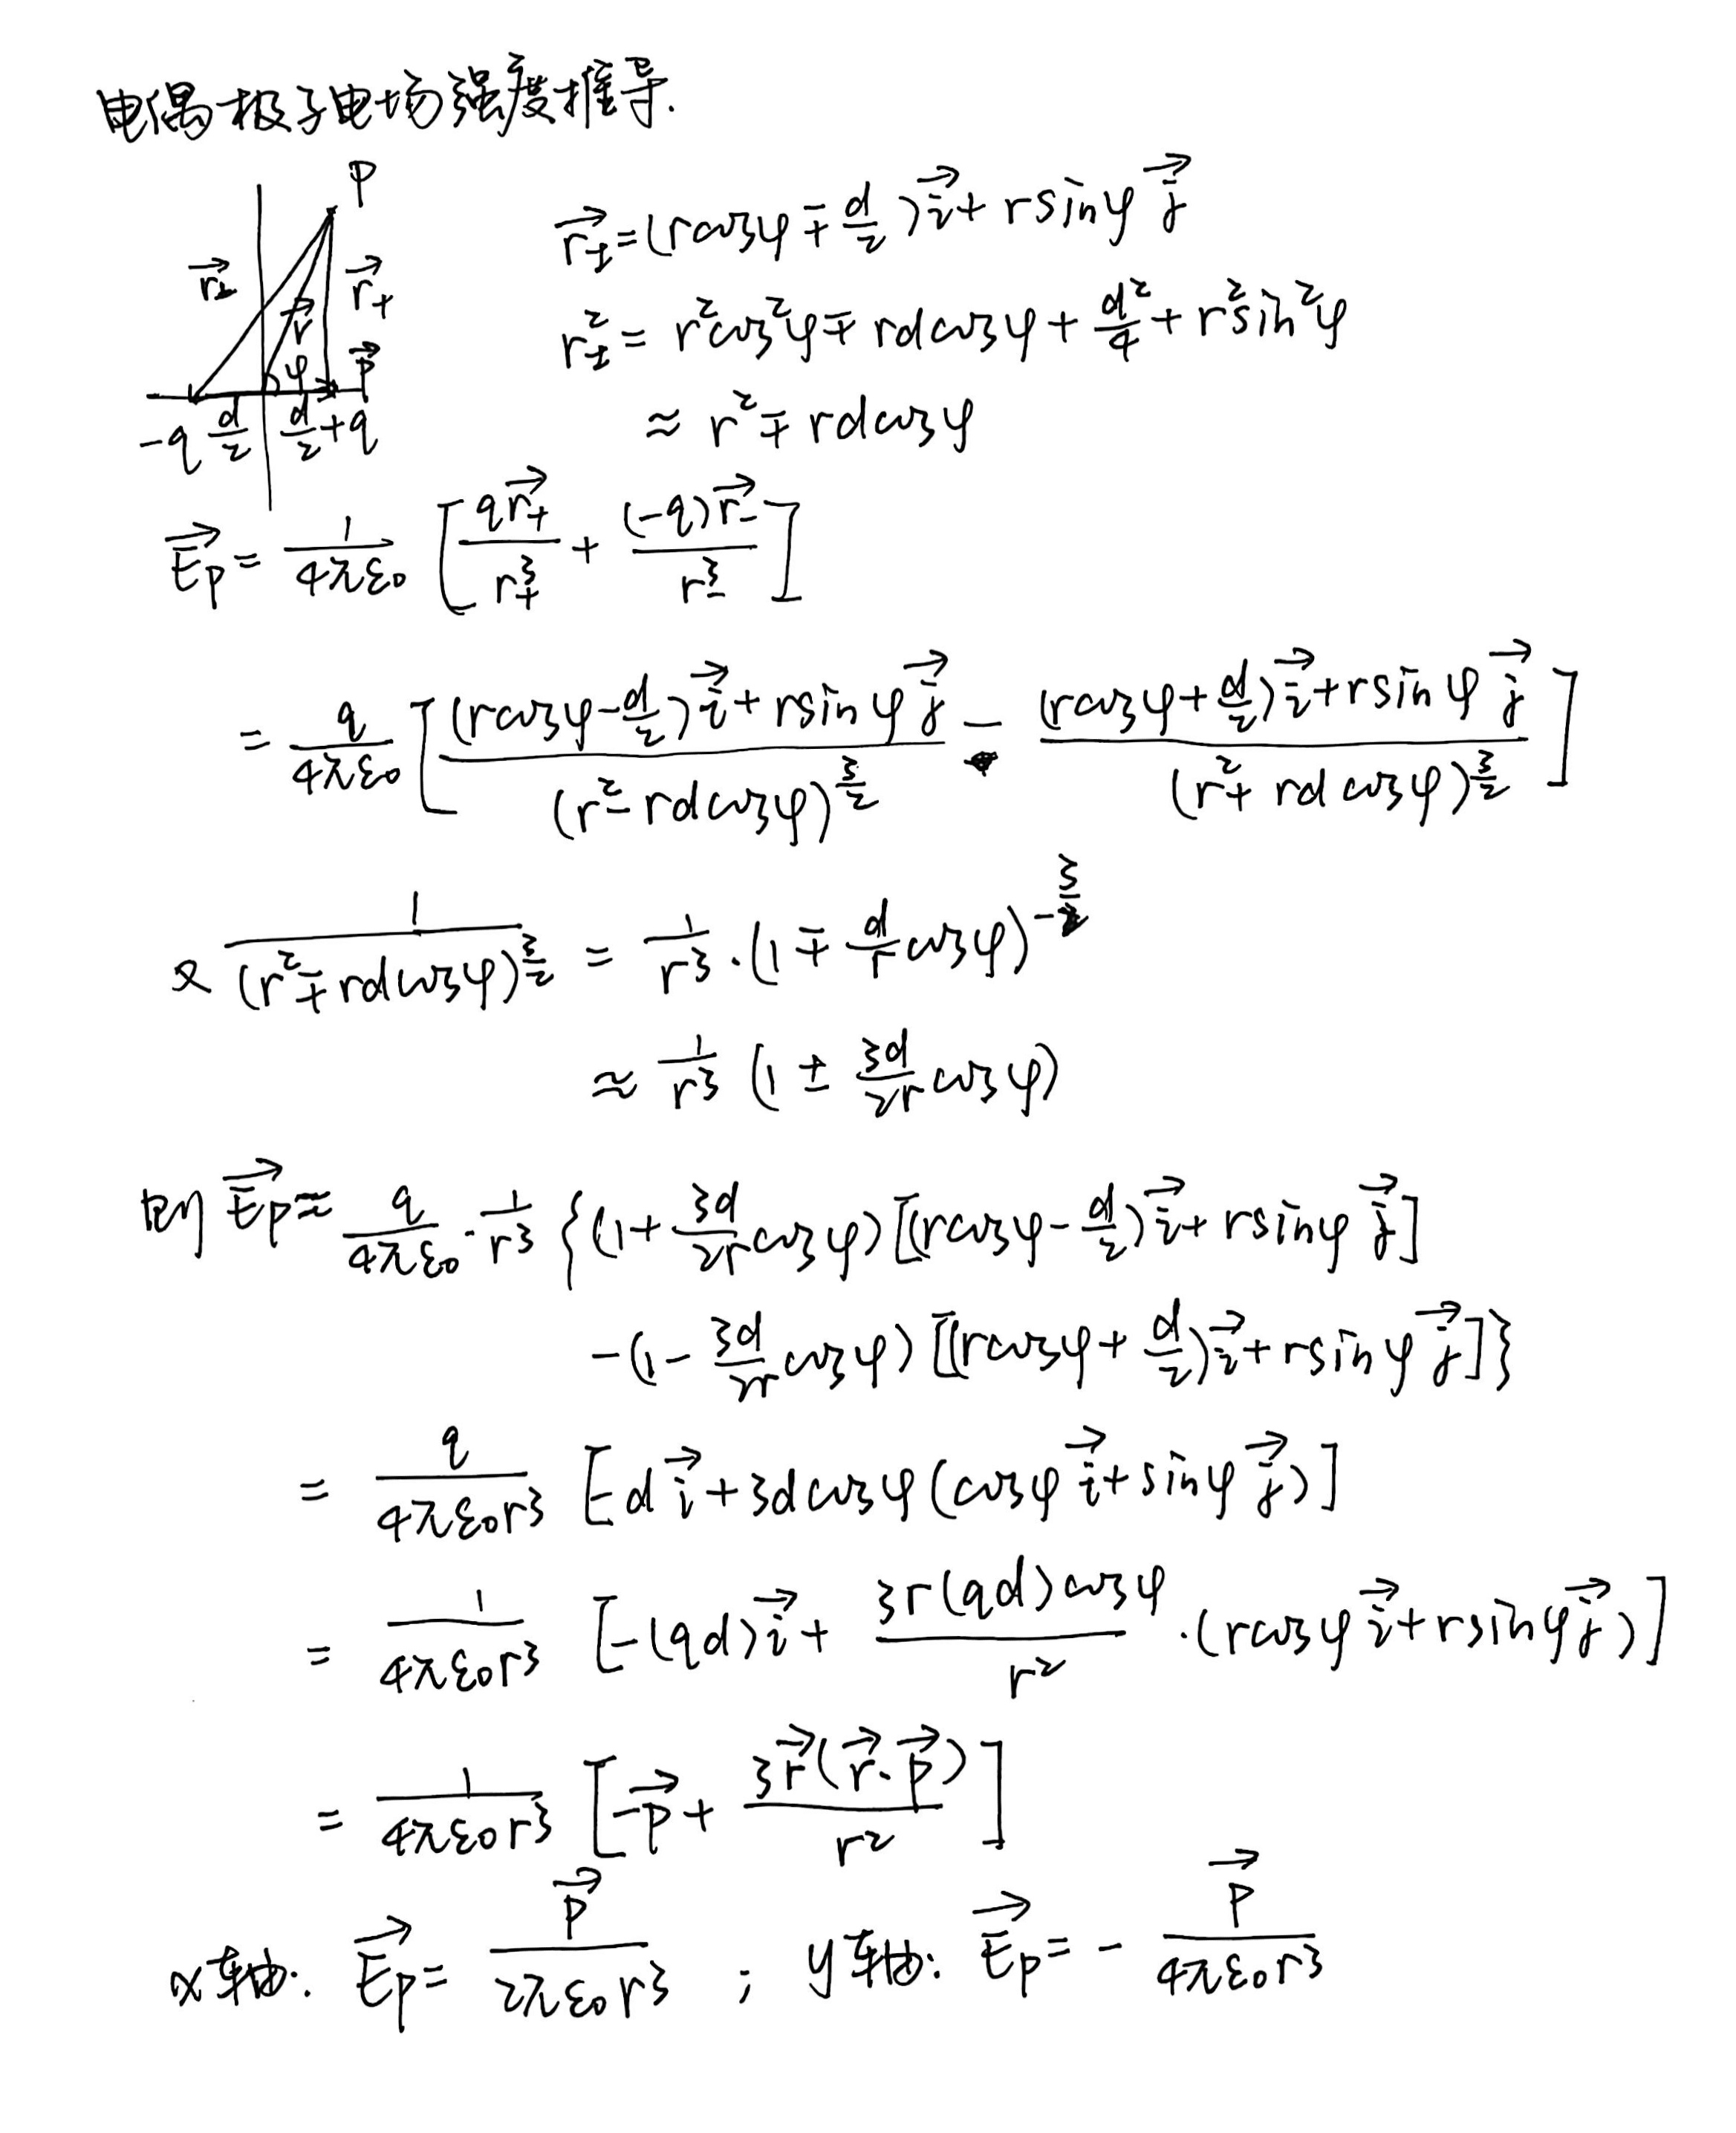 电偶极子电场强度推导.
P
$\vec{r_-}$ $\vec{r}$ $\vec{r_+}$
φ $\vec{p}$
-q $\frac{d}{2}$ $\frac{d}{2}$ +q
$\vec{r_\pm}=(r\cos φ\mp\frac{d}{2})\vec{i}+r\sin φ\vec{j}$
$r_\pm^2=r^2\cos^2φ\mp rd\cos φ+\frac{d^2}{4}+r^2\sin^2φ$
$≈ r^2\mp rd\cos φ$
$\vec{E_P}=\frac{1}{4πε_0}\left[\frac{q\vec{r_+}}{r_+^3}+\frac{(-q)\vec{r_-}}{r_-^3}\right]$
$=\frac{q}{4πε_0}\left[\frac{(r\cos φ-\frac{d}{2})\vec{i}+r\sin φ\vec{j}}{(r^2-rd\cos φ)^{\frac{3}{2}}}-\frac{(r\cos φ+\frac{d}{2})\vec{i}+r\sin φ\vec{j}}{(r^2+rd\cos φ)^{\frac{3}{2}}}\right]$
又 $\frac{1}{(r^2\mp rd\cos φ)^{\frac{3}{2}}}=\frac{1}{r^3}·(1\mp\frac{d}{r}\cos φ)^{-\frac{3}{2}}$
$≈\frac{1}{r^3}(1±\frac{3d}{2r}\cos φ)$
则 $\vec{E_P}≈\frac{q}{4πε_0}·\frac{1}{r^3}\{(1+\frac{3d}{2r}\cos φ)[(r\cos φ-\frac{d}{2})\vec{i}+r\sin φ\vec{j}]$
$-(1-\frac{3d}{2r}\cos φ)[(r\cos φ+\frac{d}{2})\vec{i}+r\sin φ\vec{j}]\}$
$=\frac{q}{4πε_0r^3}[-d\vec{i}+3d\cos φ(\cos φ\vec{i}+\sin φ\vec{j})]$
$=\frac{1}{4πε_0r^3}[-(qd)\vec{i}+\frac{3r(qd)\cos φ}{r^2}·(r\cos φ\vec{i}+r\sin φ\vec{j})]$
$=\frac{1}{4πε_0r^3}\left[-\vec{p}+\frac{3\vec{r}(\vec{r}·\vec{p})}{r^2}\right]$
x轴: $\vec{E_P}=\frac{\vec{p}}{2πε_0r^3}$ ; y轴: $\vec{E_P}=-\frac{\vec{p}}{4πε_0r^3}$